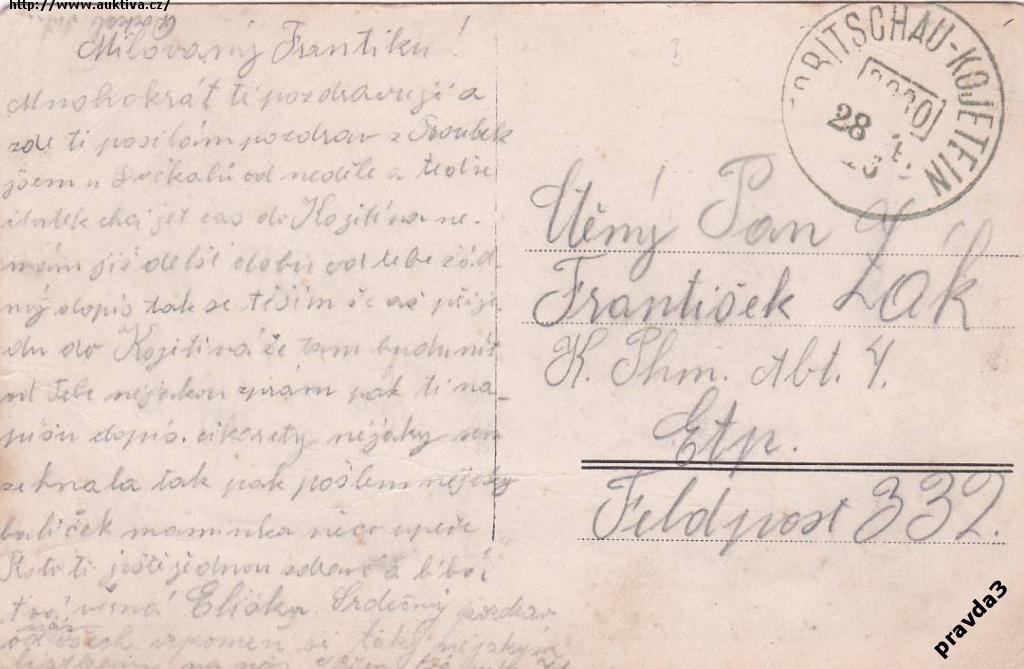 http://www.auktiva.cz/
Milovaný Frantíku!
Mnohokrát ti pozdravuji a
zde ti posílám pozdrav z Troubek
jsem u od neděle a
chci jet zas do Kojetína ne-
mám již delší dobu od tebe žád-
ný dopis tak se těším že až přije-
du do Kojetína že tam budu mít
od Tebe nějakou zprávu pak ti na-
píšu dopis. cikarety nějaký sem
zehnala tak pak pošlem nějaký
balíček maminka něco upeče
ti ještě jednou zdraví a líbá
tvá věrná Eliška. Srdečný pozdrav
od nás všech vzpomeň si taky nějakým
na nás
TOBITSCHAU-KOJETEIN
28
Ctěný Pan
František Žák
K. Thm. Abt. 4.
Etp.
Feldpost 332.
pravda3